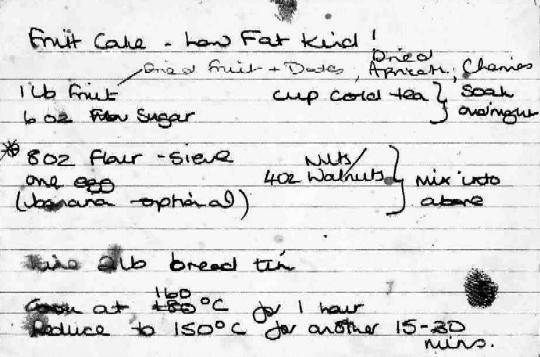 Fruit Cake - Low Fat Kind!
Dried Fruit + Dates, Dried Apricots, Cherries
1 lb Fruit cup cold tea } Soak
6 oz Sugar overnight
* 8oz Flour - Sieve Nuts/
one egg 4oz Walnuts } Mix into
(banana - optional) above
Line 2lb bread tin
160
at 180°C for 1 hour
Reduce to 150°C for another 15-20
mins.